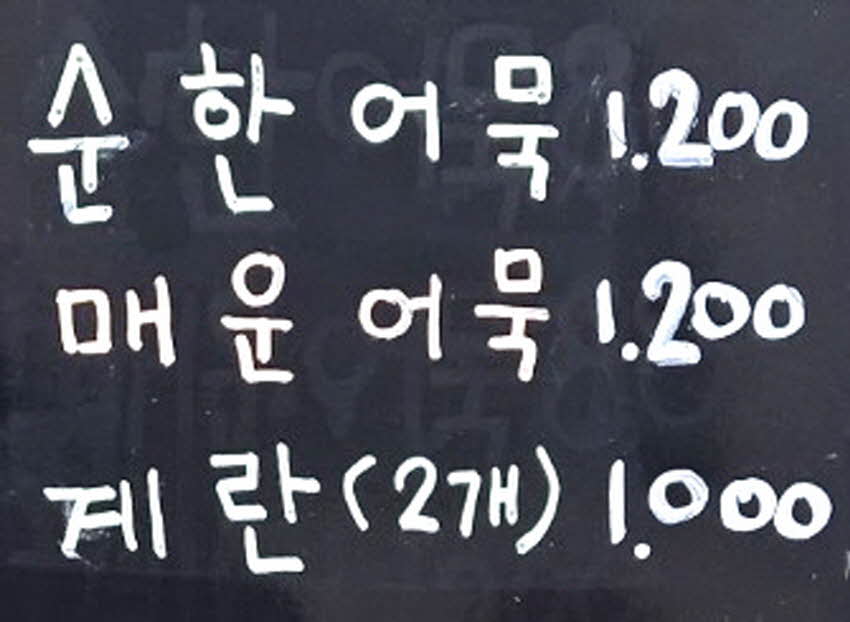 순한 어묵 1.200
매운 어묵 1.200
계란(2개) 1.000